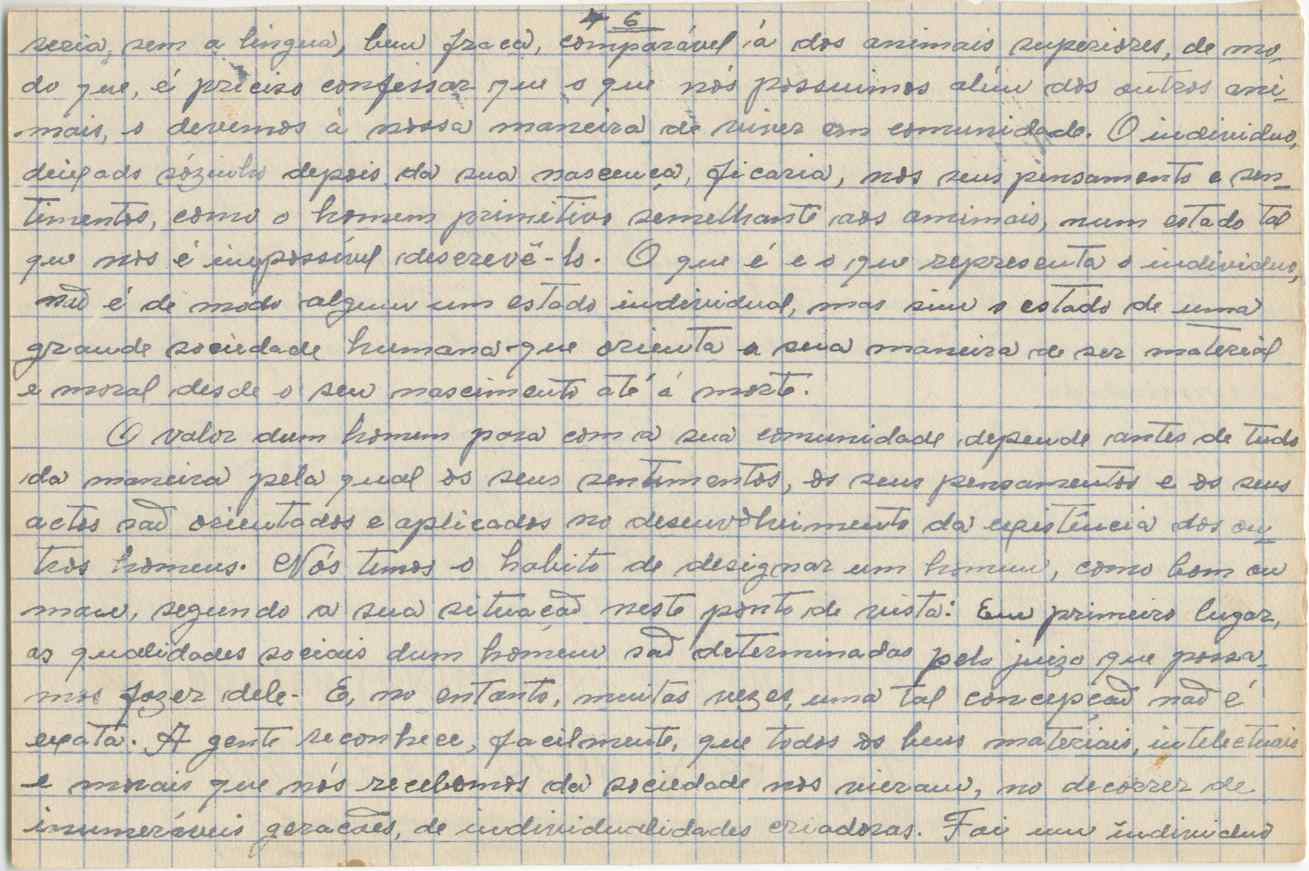 6
seria, sem a lingua, bem fraca, comparável á dos animais superiores, de mo-
do que, é preciso confessar que o que nós possuimos alem dos outros ani-
mais, o devemos á nossa maneira de viver em comunidade. O individuo,
deixado sózinho depois da sua nascença, ficaria, nos seus pensamento e sen-
timentos, como o homem primitivo semelhante aos animais, num estado tal
que nos é impossível descrevê-lo. O que é e o que representa o individuo,
não é de modo algum um estado individual, mas sim o estado de uma
grande sociedade humana que orienta a sua maneira de ser material
e moral desde o seu nascimento até á morte.
O valor dum homem para com a sua comunidade depende antes de tudo
da maneira pela qual os seus sentimentos, os seus pensamentos e os seus
actos são orientados e aplicados no desenvolvimento da existência dos ou-
tros homens. Nós temos o habito de designar um homem, como bom ou
mau, segundo a sua situação neste ponto de vista: Em primeiro lugar,
as qualidades sociais dum homem são determinadas pelo juizo que possa-
mos fazer dele. E, no entanto, muitas vezes, uma tal concepção não é
exata. A gente reconhece, facilmente, que todos os bens materiais, intelectuais
e morais que nós recebemos da sociedade nos vieram, no decorrer de
inumeráveis gerações, de individualidades criadoras. Foi um individuo